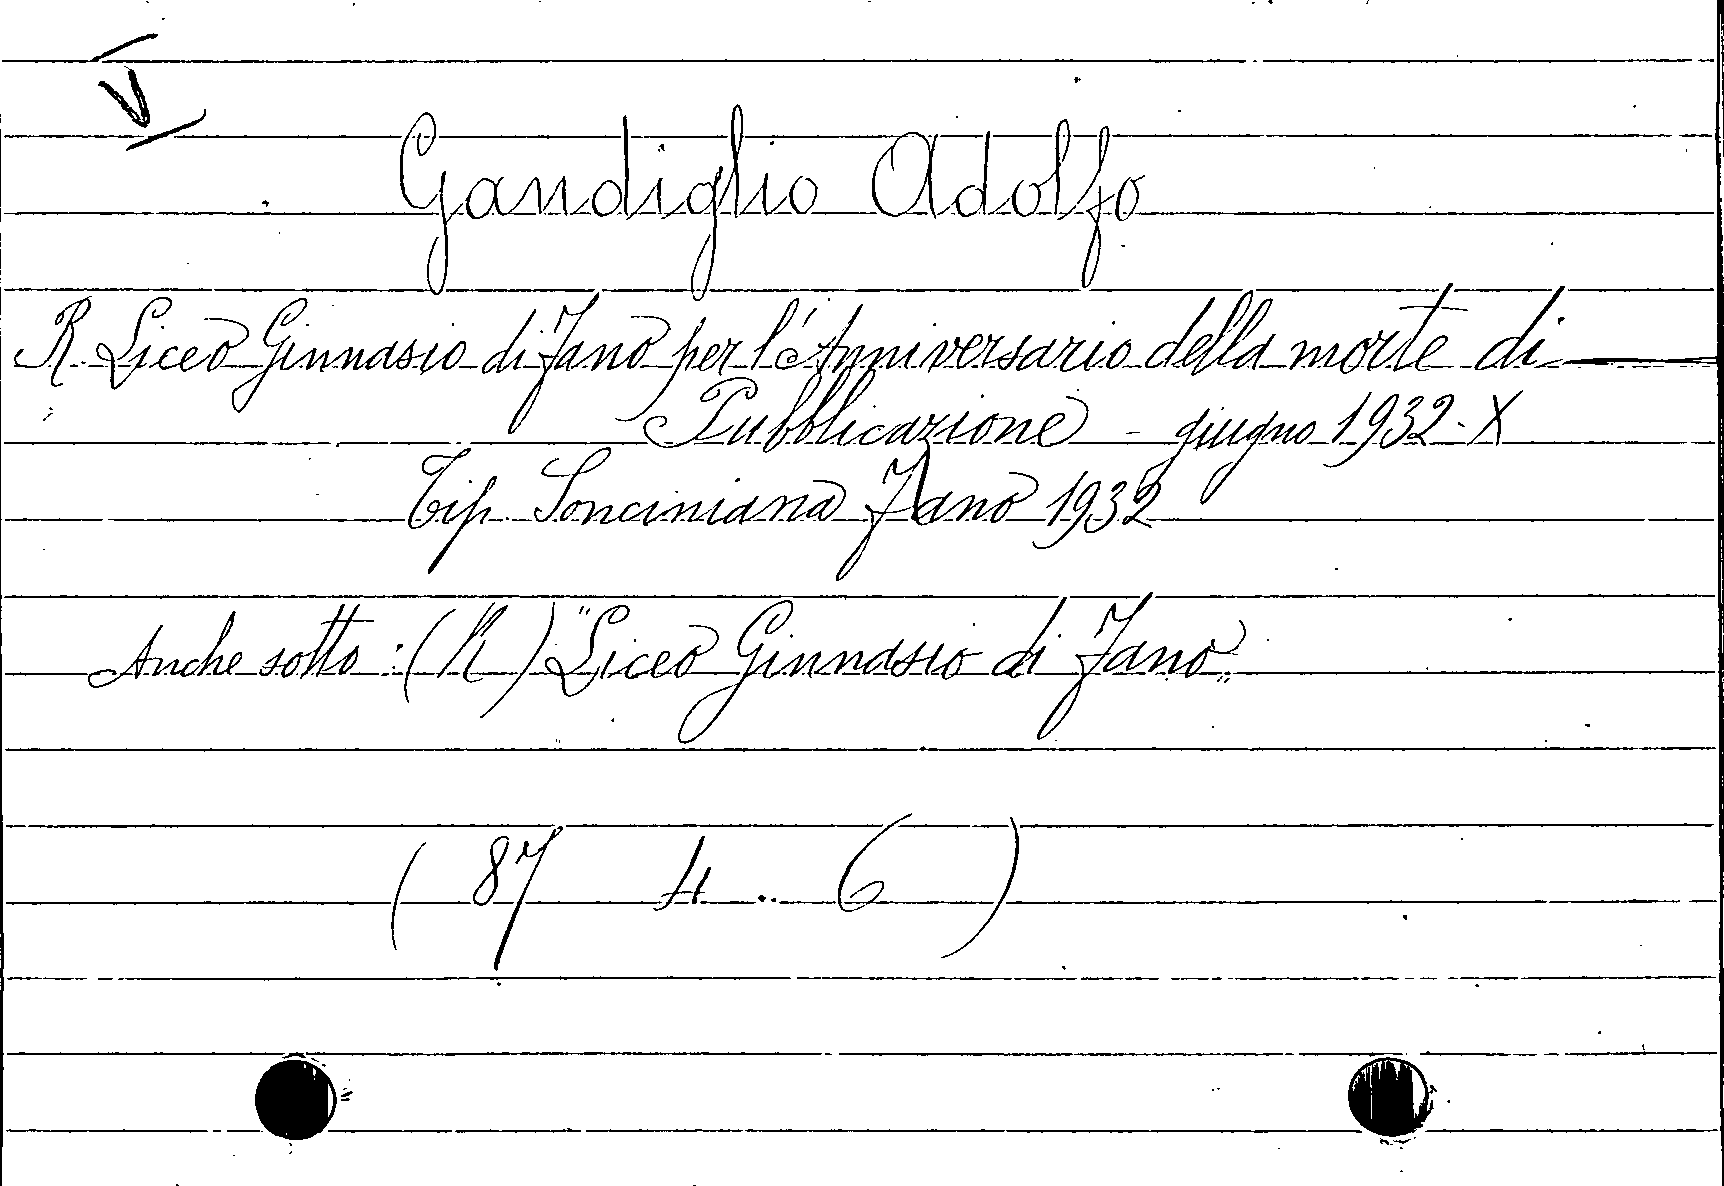 V
Gandiglio Adolfo
R. Liceo Ginnasio di Fano per l'Anniversario della morte di —
Pubblicazione - giugno 1932 - X
Tip. Sonciniana Fano 1932
Anche sotto : (R) "Liceo Ginnasio di Fano„
( 87 4 .. 6 )